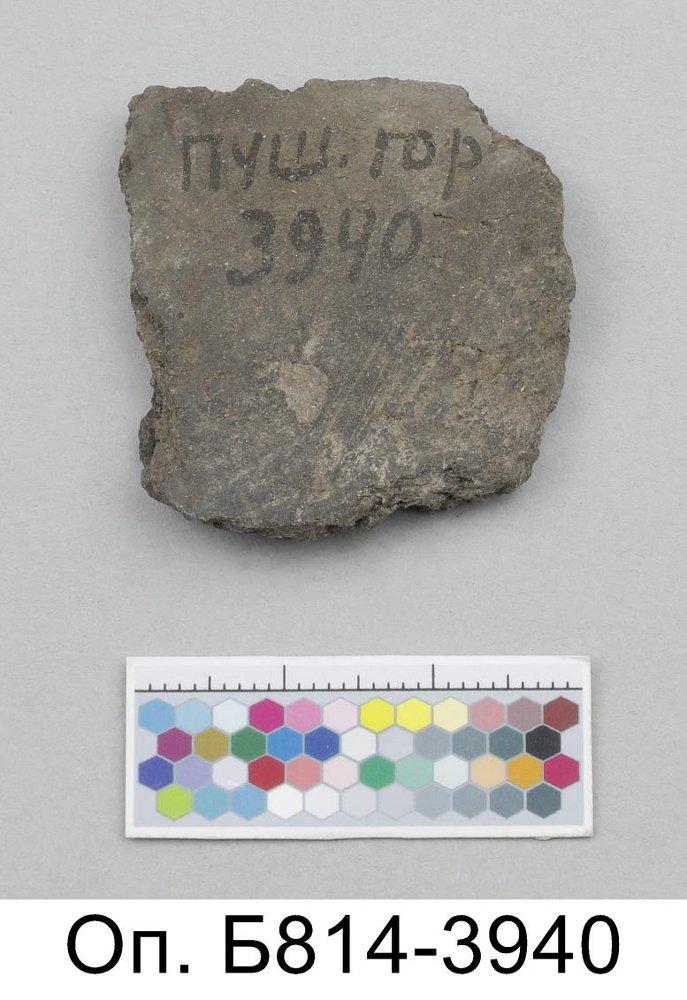 пуш. гор
3940
Оп. Б814-3940